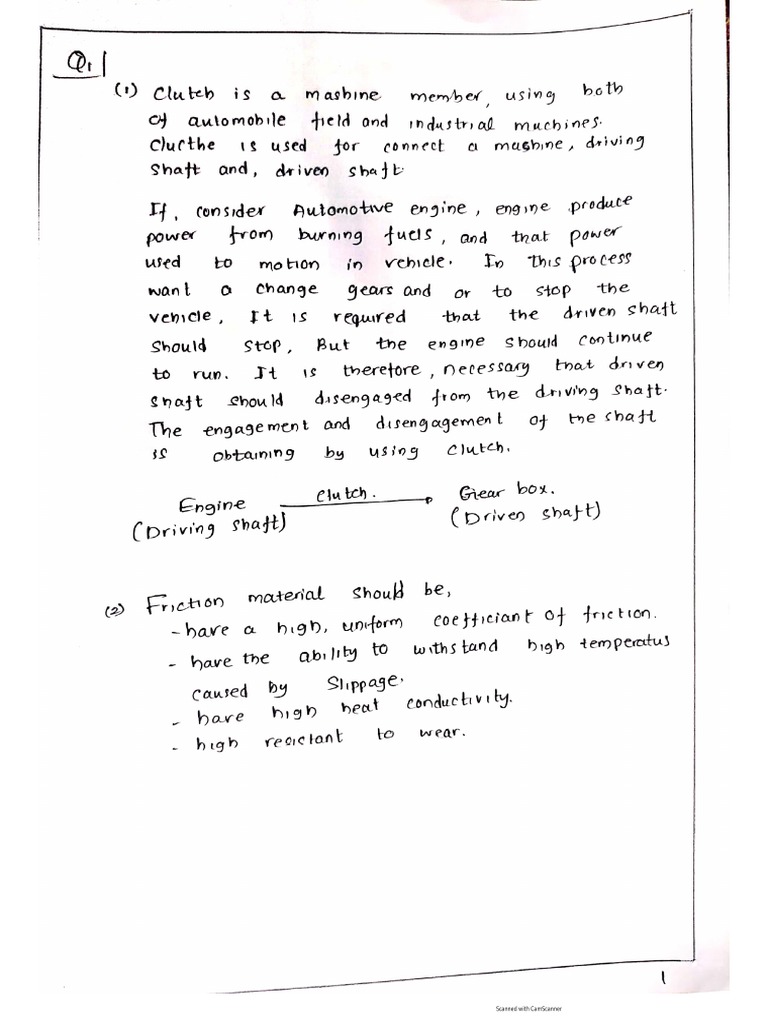 Q1
(1) Clutch is a mashine member, using both
of automobile field and industrial muchines.
Clucthe is used for connect a mushine, driving
shaft and, driven shaft.
If, consider Automotive engine, engine produce
power from burning fuels, and that power
used to motion in vehicle. In this process
want a change gears and or to stop the
vehicle, It is required that the driven shaft
should stop, But the engine should continue
to run. It is therefore, necessary that driven
shaft should disengaged from the driving shaft.
The engagement and disengagement of the shaft
is obtaining by using clutch.
Engine clutch. Gear box.
(Driving shaft) (Driven shaft)
(2) Friction material should be,
- have a high, uniform coefficiant of friction.
- have the ability to withstand high temperatus
caused by slippage.
- have high heat conductivity.
- high resictant to wear.
1
Scanned with CamScanner